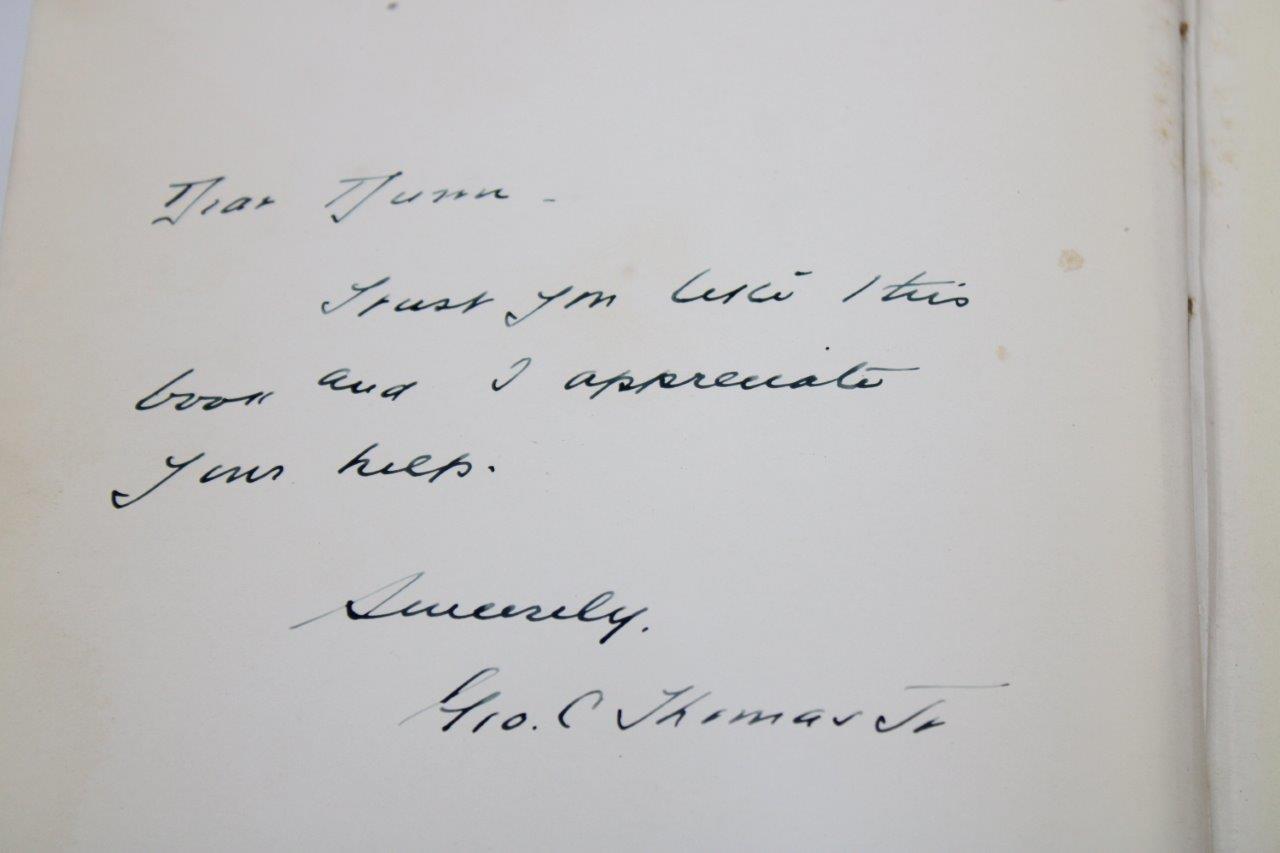 Dear Dunn -
Trust you like this
book and I appreciate
your help.
Sincerely,
Geo. C Thomas Jr